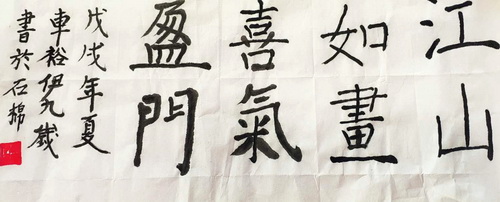 江山
如畫
喜氣
盈門
戊戌年夏
車裕伊九歲
書於石棉